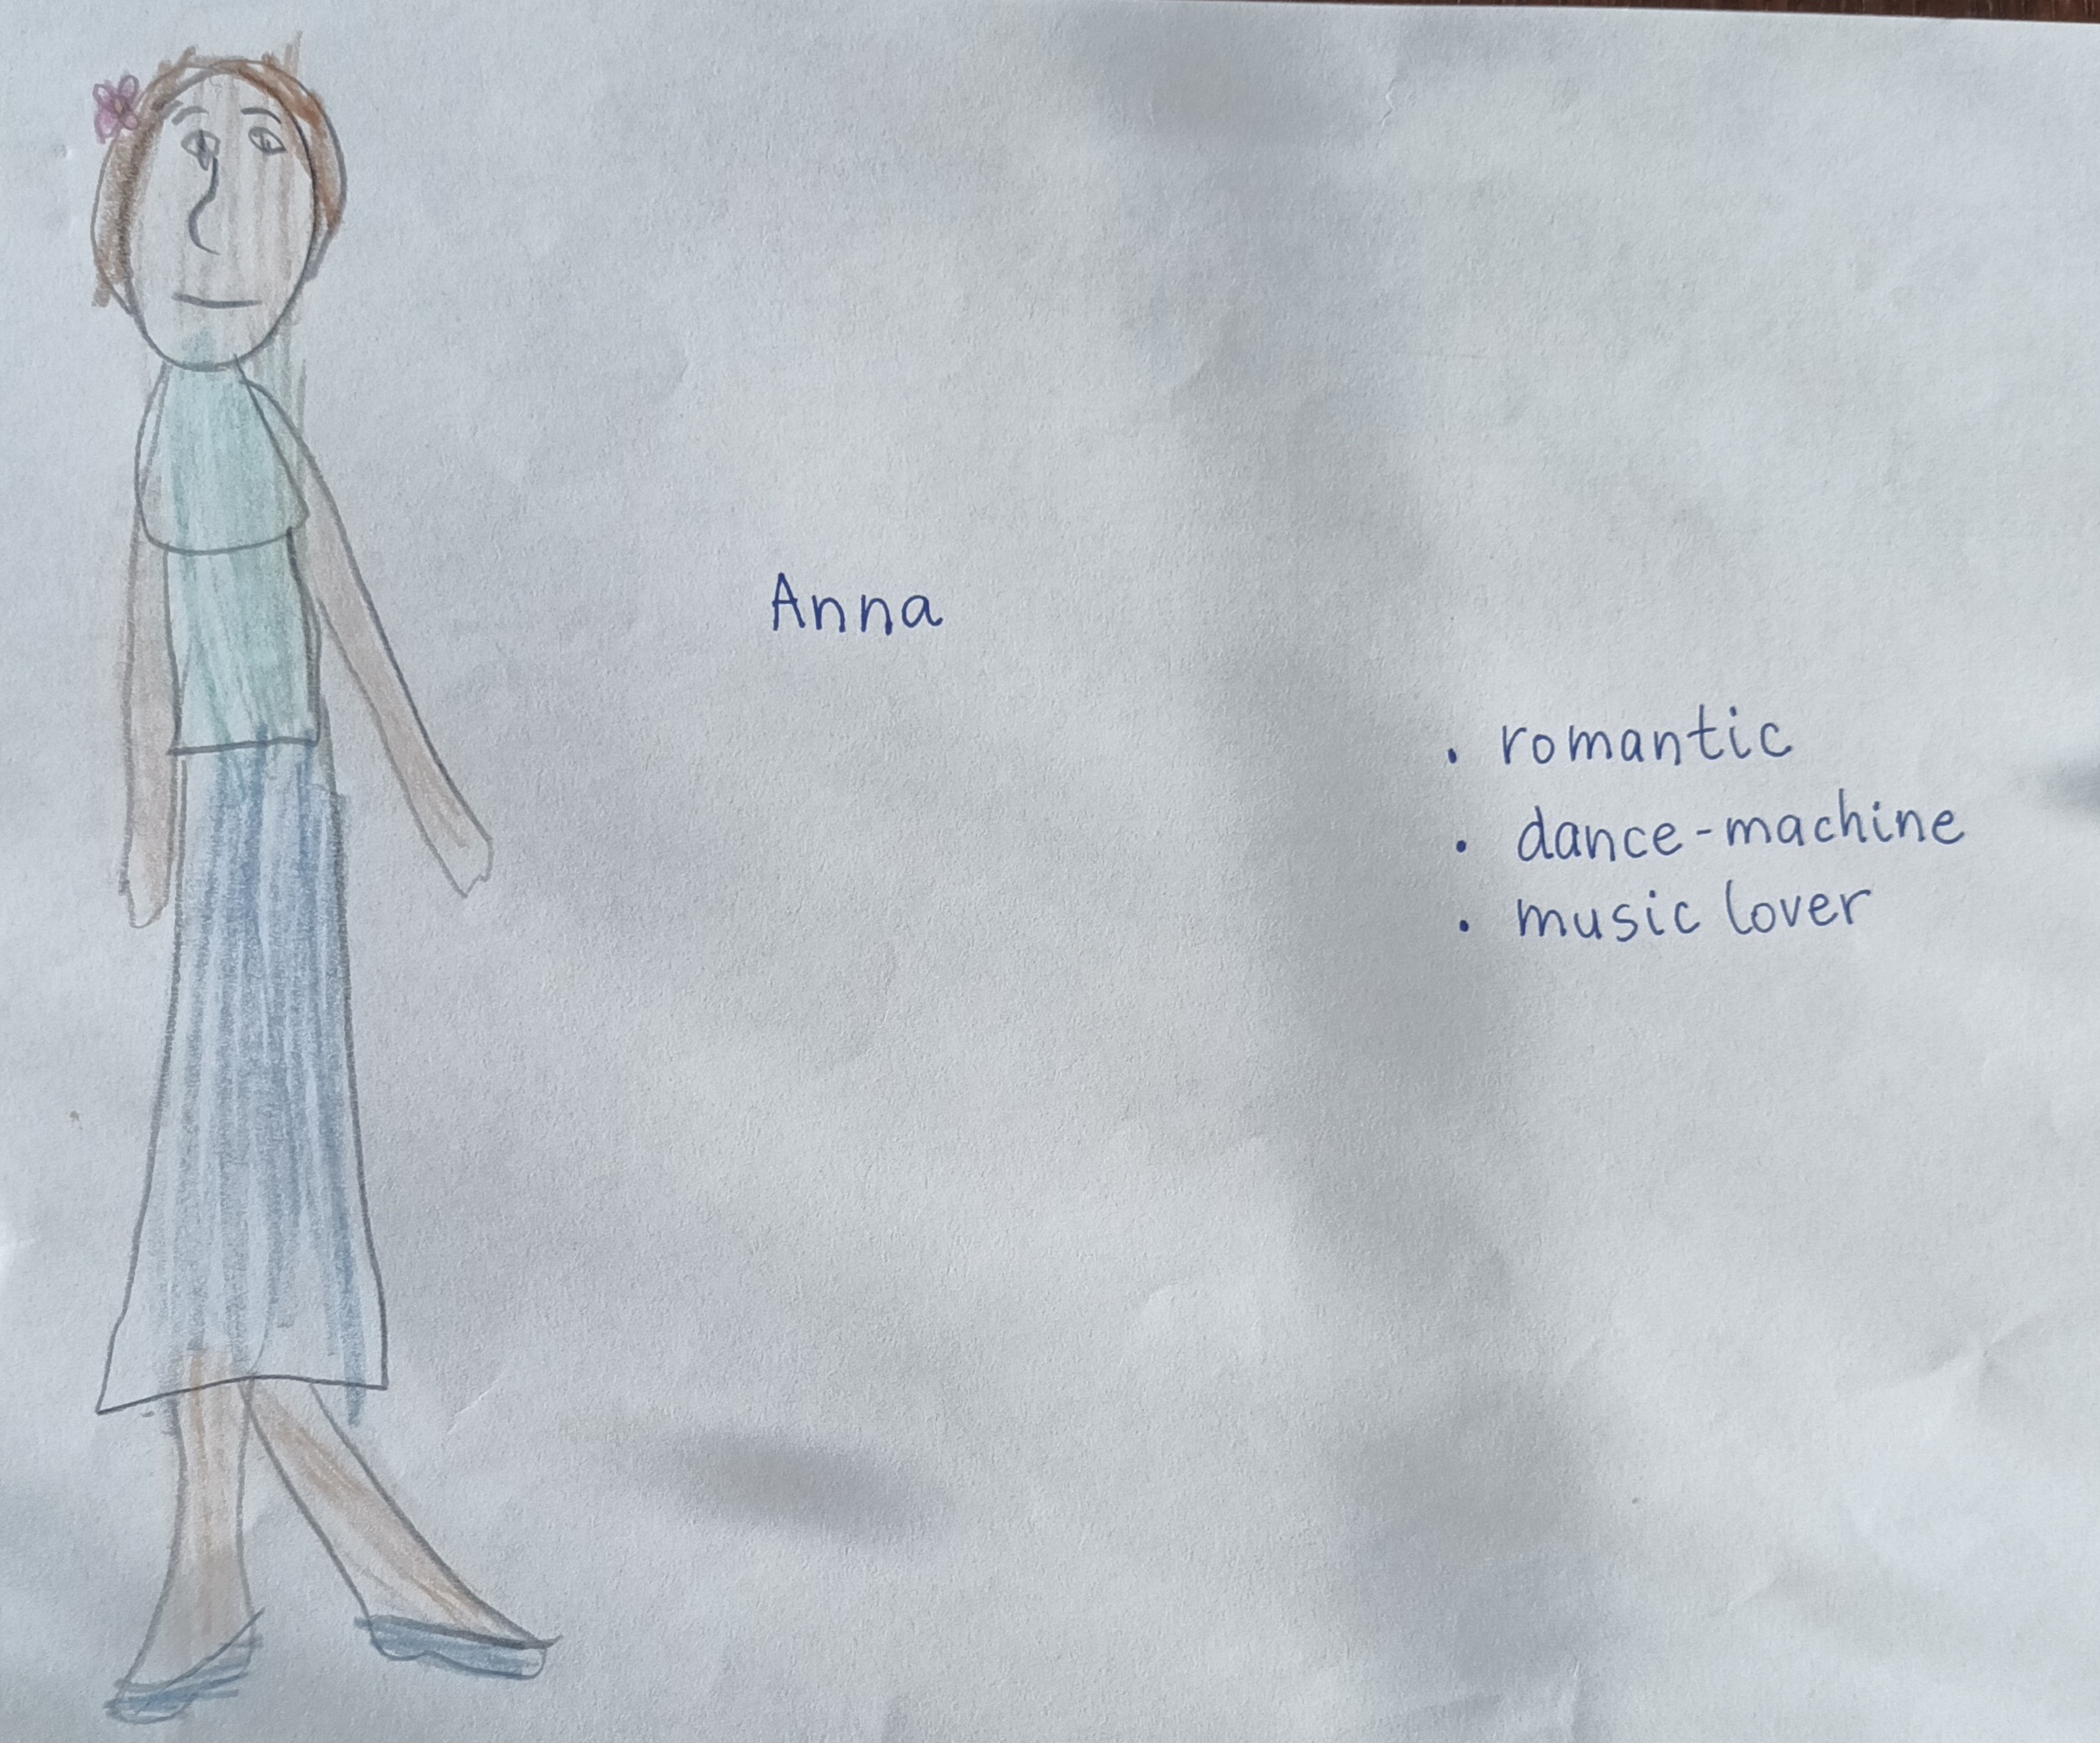 Anna
. romantic
. dance-machine
. music lover